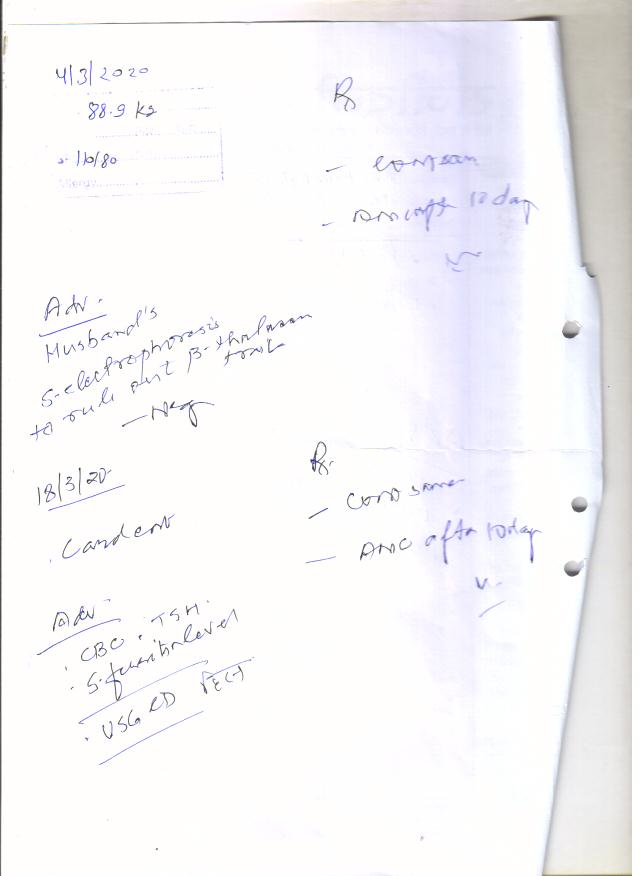 4/3/2020
88.9 Kg
110/80
Allergy
Rx
- cont same
- ANC after 10 day
Adv.
Husband's
S-electrophorasis
to rule out β-thalassam
trait
- Neg
18/3/20
Rx
- cont same
- ANC after 10 day
Adv
. CBC . TSH.
. S. ferritin level
. USG